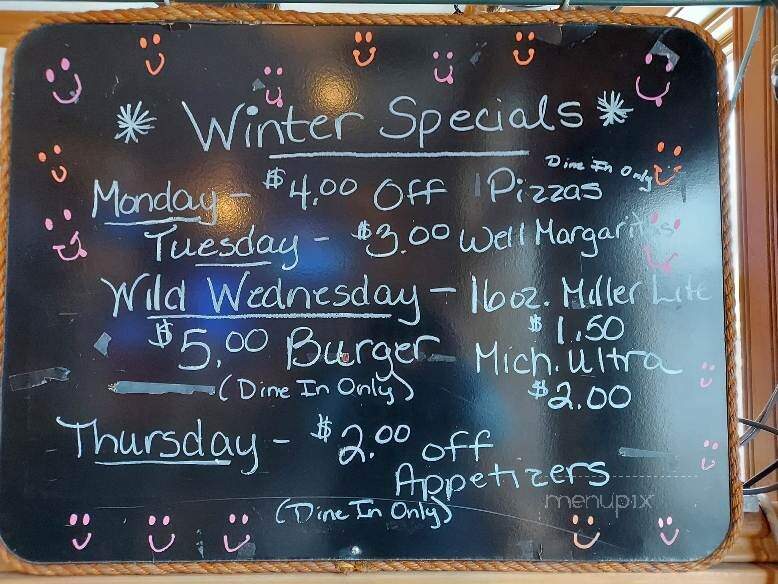 * Winter Specials *
Monday - $4.00 Off Pizzas Dine In Only
Tuesday - $3.00 Well Margaritas
Wild Wednesday - 16oz. Miller Lite
$1.50
$5.00 Burger Mich. Ultra
(Dine In Only) $2.00
Thursday - $2.00 off
Appetizers
(Dine In Only)
menupix